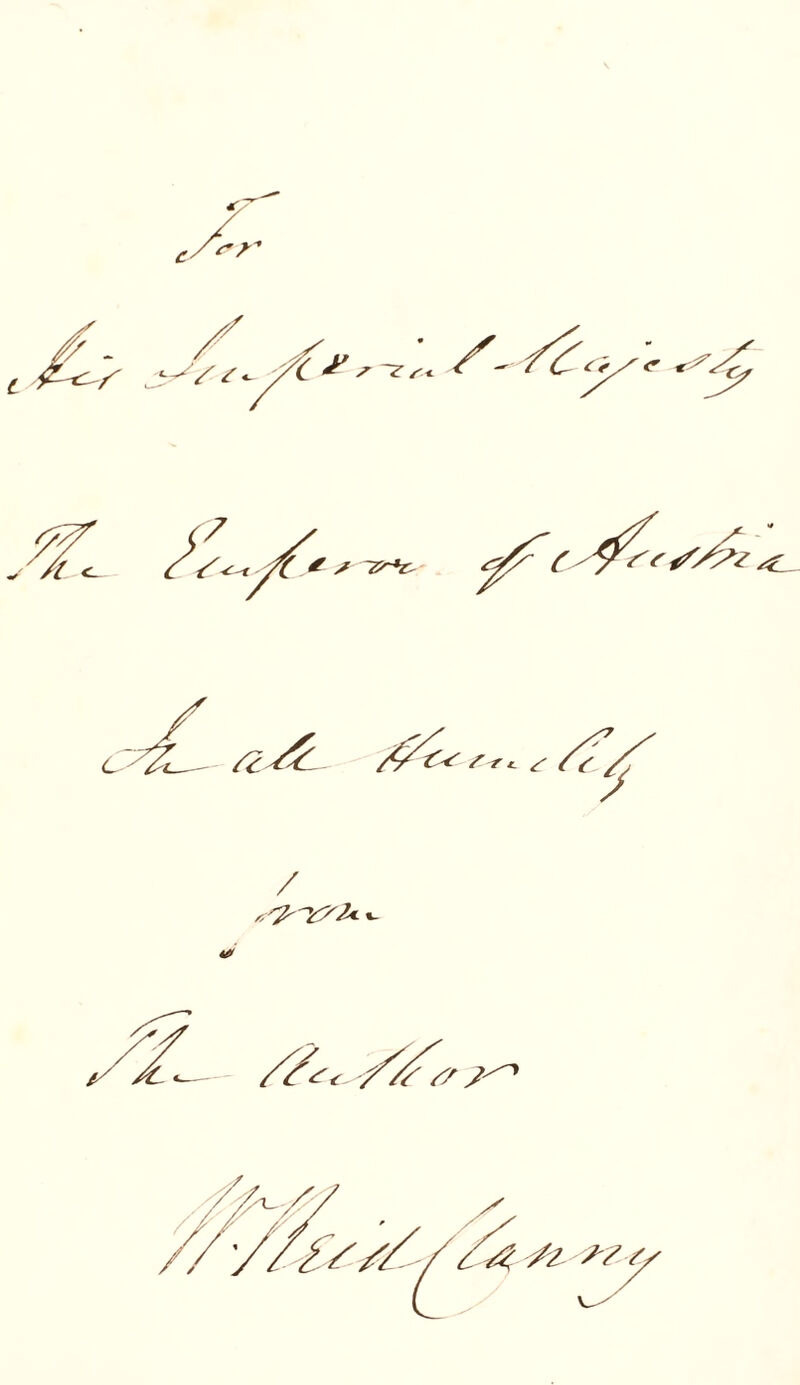 For
His Imperial Majesty
The Emperor of Austria
In all Humility
from
The Author
W. Reid Clanny